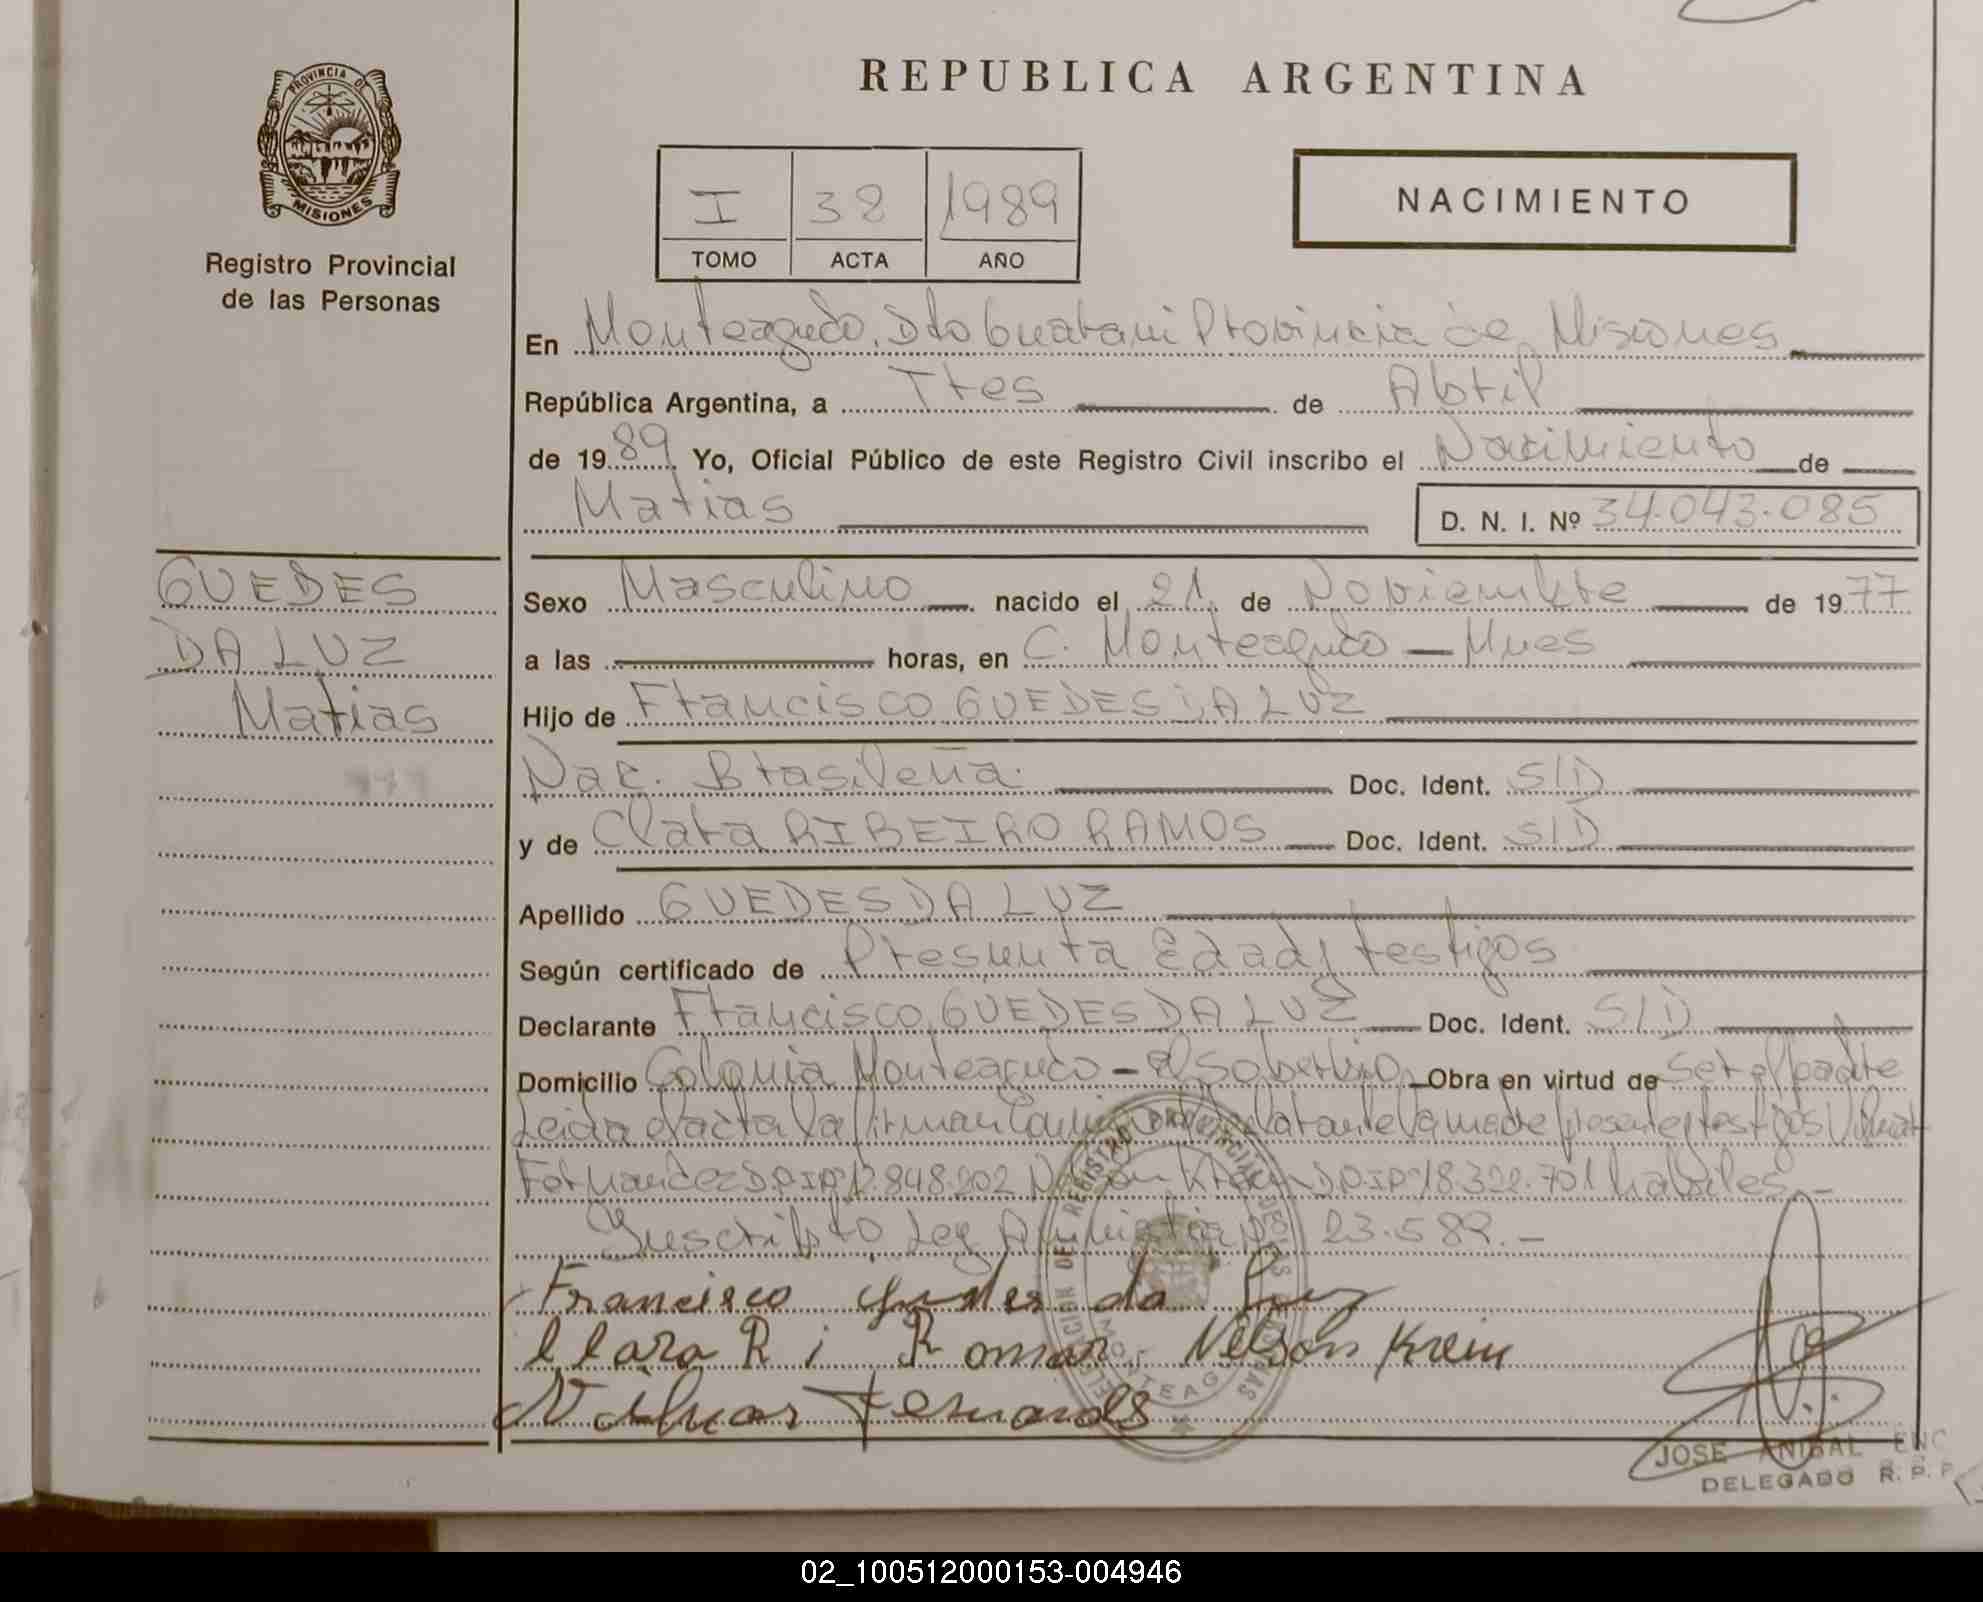 REPUBLICA ARGENTINA
PROVINCIA DE
MISIONES
Registro Provincial
de las Personas
I 38 1989
TOMO ACTA AÑO
NACIMIENTO
En Monteagudo. Dto Guarani Provincia de Misiones
República Argentina, a Tres de Abril
de 1989 Yo, Oficial Público de este Registro Civil inscribo el Nacimiento de
Matias D. N. I. Nº 34.043.085
GUEDES
DA LUZ
Matias
Sexo Masculino nacido el 21 de Noviembre de 1977
a las horas, en C. Monteagudo — Mnes
Hijo de Francisco GUEDES DA LUZ
Nac. Brasileña. Doc. Ident. S/D
y de Clara RIBEIRO RAMOS Doc. Ident. S/D
Apellido GUEDES DA LUZ
Según certificado de Presunta Edad y testigos
Declarante Francisco GUEDES DA LUZ Doc. Ident. S/D
Domicilio Colonia Monteagudo - El Soberbio Obra en virtud de ser el padre
Leida el acta la firman el declarante la madre presente testigos
Fernandez D.N.I.Nº 12.848.202 Nelson Krein D.N.I.Nº 18.322.701 habiles -
Inscripto Ley Amnistia Nº 23.582.-
Francisco guedes da luz
Clara R i Ramos Nelson Krein
Vilmar Fernandes
DELEGACION DEL REGISTRO PROVINCIAL DE LAS PERSONAS
MONTEAG
JOSE ANIBAL ENC
DELEGADO R. P. P
02_100512000153-004946